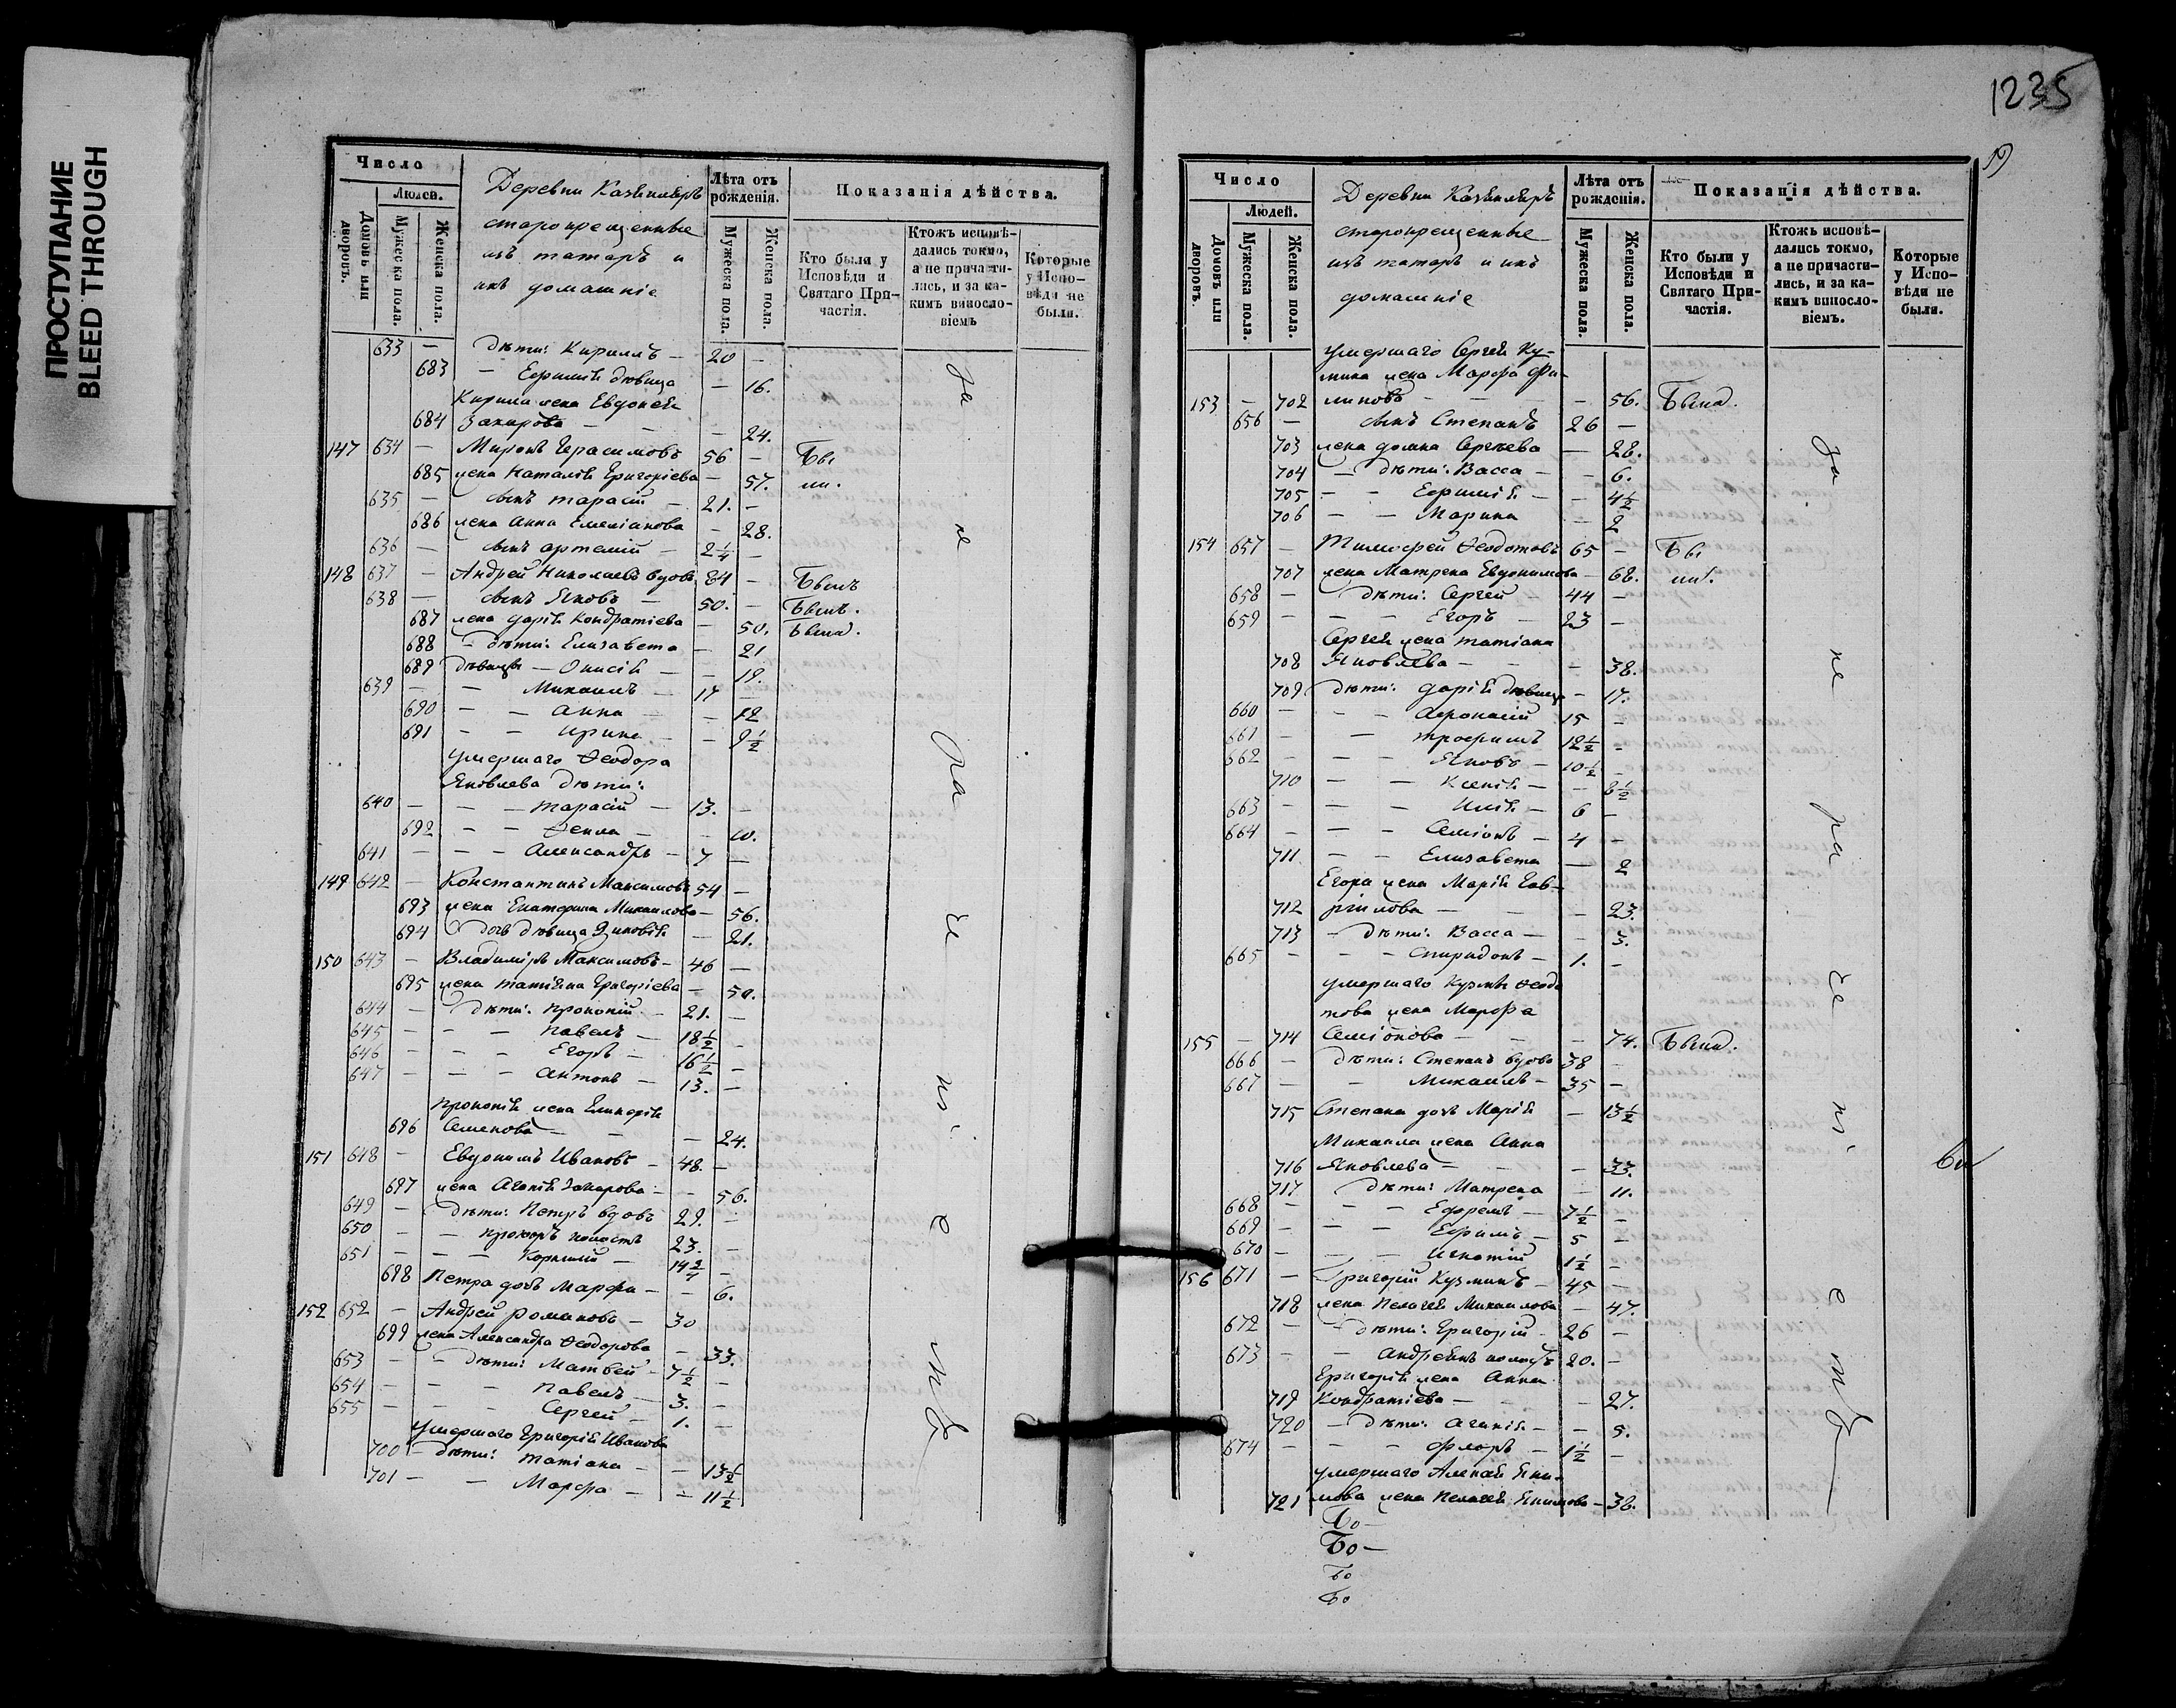 ПРОСТУПАНИЕ
BLEED THROUGH
Число
Людей.
Домовъ или дворовъ.
Мужеска пола.
Женска пола.
Деревни
старокрещенные
изъ татаръ и
ихъ домашніе
Лѣта отъ рожденія.
Мужеска пола.
Женска пола.
Показанія дѣйства.
Кто были у Исповѣди и Святаго Причастія.
Ктожъ исповѣдались токмо, а не причастились, и за какимъ винословіемъ
Которые у Исповѣди не были.
633 — дѣти: Кириллъ — 20 —
683 — Евфимія дѣвица — 16.
Кирила жена Евдокія
684 Захарова — — 24.
147 634 — Миронъ Герасимовъ 56 — Бы
685 жена Наталія Григоріева — 57. ли.
635 — сынъ Тарасій — 21. —
686 жена Анна Емеліанова — 28.
636 — сынъ Артемій — 2 1/4 —
148 637 — Андрей Николаевъ вдовъ 84 — Былъ
638 — сынъ Яковъ — 50. — Былъ.
687 жена Дарія Кондратіева — 50. Была.
688 — дѣти: Елизавета — 21
689 дѣвицы — Онисія — — 19.
639 — — Михаилъ — 17 —
690 — — Анна — — 12
691 — — Ирина — — 9 1/2
умершаго Ѳеодора
Яковлева дѣти:
640 — — — Тарасій — 13. —
692 — — Ѳекла — — 10.
641 — — — Александръ — 7 —
149 642 — Константинъ Максимовъ 54 —
693 жена Екатерина Михаилова — 56.
694 дочь дѣвица Зиновія — 21.
150 643 — Владиміръ Максимовъ — 46 —
695 жена Татіяна Григоріева — 50.
644 — дѣти: Прокопій — 21. —
645 — — — Павелъ — 18 1/2 —
646 — — — Егоръ — 16 1/2 —
647 — — — Антонъ — 13. —
Прокопія жена Гликерія
696 Семенова — — — 24.
151 648 — Евдокимъ Ивановъ — 48. —
697 жена Агапія Захарова — — 56.
649 — дѣти: Петръ вдовъ 29. —
650 — — Прохоръ холостъ 23. —
651 — — — Корнилій — 14 2/4 —
698 Петра дочь Марфа — — 6.
152 652 — Андрей Романовъ — 30
699 жена Александра Ѳеодорова — 33.
653 — — дѣти: Матвей — 7 1/2 —
654 — — — Павелъ — 3. —
655 — — — Сергей — 1. —
умершаго Григорія Иванова
700 дѣти: Татіана — — 13 1/2
701 — — Марфа — — 11 1/2
за не ра че ні е мъ
1235
Число
Людей.
Домовъ или дворовъ.
Мужеска пола.
Женска пола.
Деревни
старокрещенные
изъ татаръ и ихъ
домашніе
Лѣта отъ рожденія.
Мужеска пола.
Женска пола.
Показанія дѣйства.
Кто были у Исповѣди и Святаго Причастія.
Ктожъ исповѣдались токмо, а не причастились, и за какимъ винословіемъ.
Которые у Исповѣди не были.
умершаго Сергея Ку-
мина жена Марфа Фи-
153 — 702 липова — — 56. Была.
656 — сынъ Степанъ 26 —
703 жена Домна Сергѣева — 28.
704 — дѣти: Васса — — 6.
705 — — Евфимія — — 4 1/2
706 — — Марина — 2
154 657 — Тимофей Ѳеодотовъ 65 — Бы
707 жена Матрена Евдокимова — 68. ли.
658 — дѣти: Сергей — 44 —
659 — — — Егоръ — 23 —
Сергея жена Татіана
708 Яковлева — — — 38.
709 дѣти: Дарія дѣвица — 17.
660 — — — Афонасій 15 —
661 — — Трофимъ 12 1/2 —
662 — — — Яковъ — 10 1/2 —
710 — — Ксенія — — 8 1/2
663 — — — Илія — 6 —
664 — — — Семіонъ — 4 —
711 — — Елизавета — 2
Егора жена Марія Гав-
712 ріилова — — — 23.
713 — дѣти: Васса — — 3.
665 — — — Спиридонъ — 1. —
умершаго Кузмы Ѳеодо
това жена Марфа
155 — 714 Семіонова — — — 74. Была.
666 — дѣти: Степанъ вдовъ 38 —
667 — — Михаилъ — 35 —
715 Степана дочь Марія — 13 1/2
Михаила жена Анна
716 Яковлева — — — 33.
717 дѣти: Матрена — 11.
668 — — — Ефремъ — 7 1/2 —
669 — — — Ефимъ — 5 —
670 — — — Игнатій 1 1/2 —
156 671 — Григорій Кузминъ — 45 —
718 жена Пелагея Михаилова — 47.
672 — — дѣти: Григорій — 26 —
673 — — Андреянъ холостъ 20. —
Григорія жена Анна
719 Кондратіева — — — 27.
720 — дѣти: Агапія — — 5.
674 — — — Флоръ — 1 1/2 —
умершаго Алексія Яки-
721 мова жена Пелагея Якимова — 38.
Бо —
Бо —
Бо
Бо
за не ра че ні е мъ